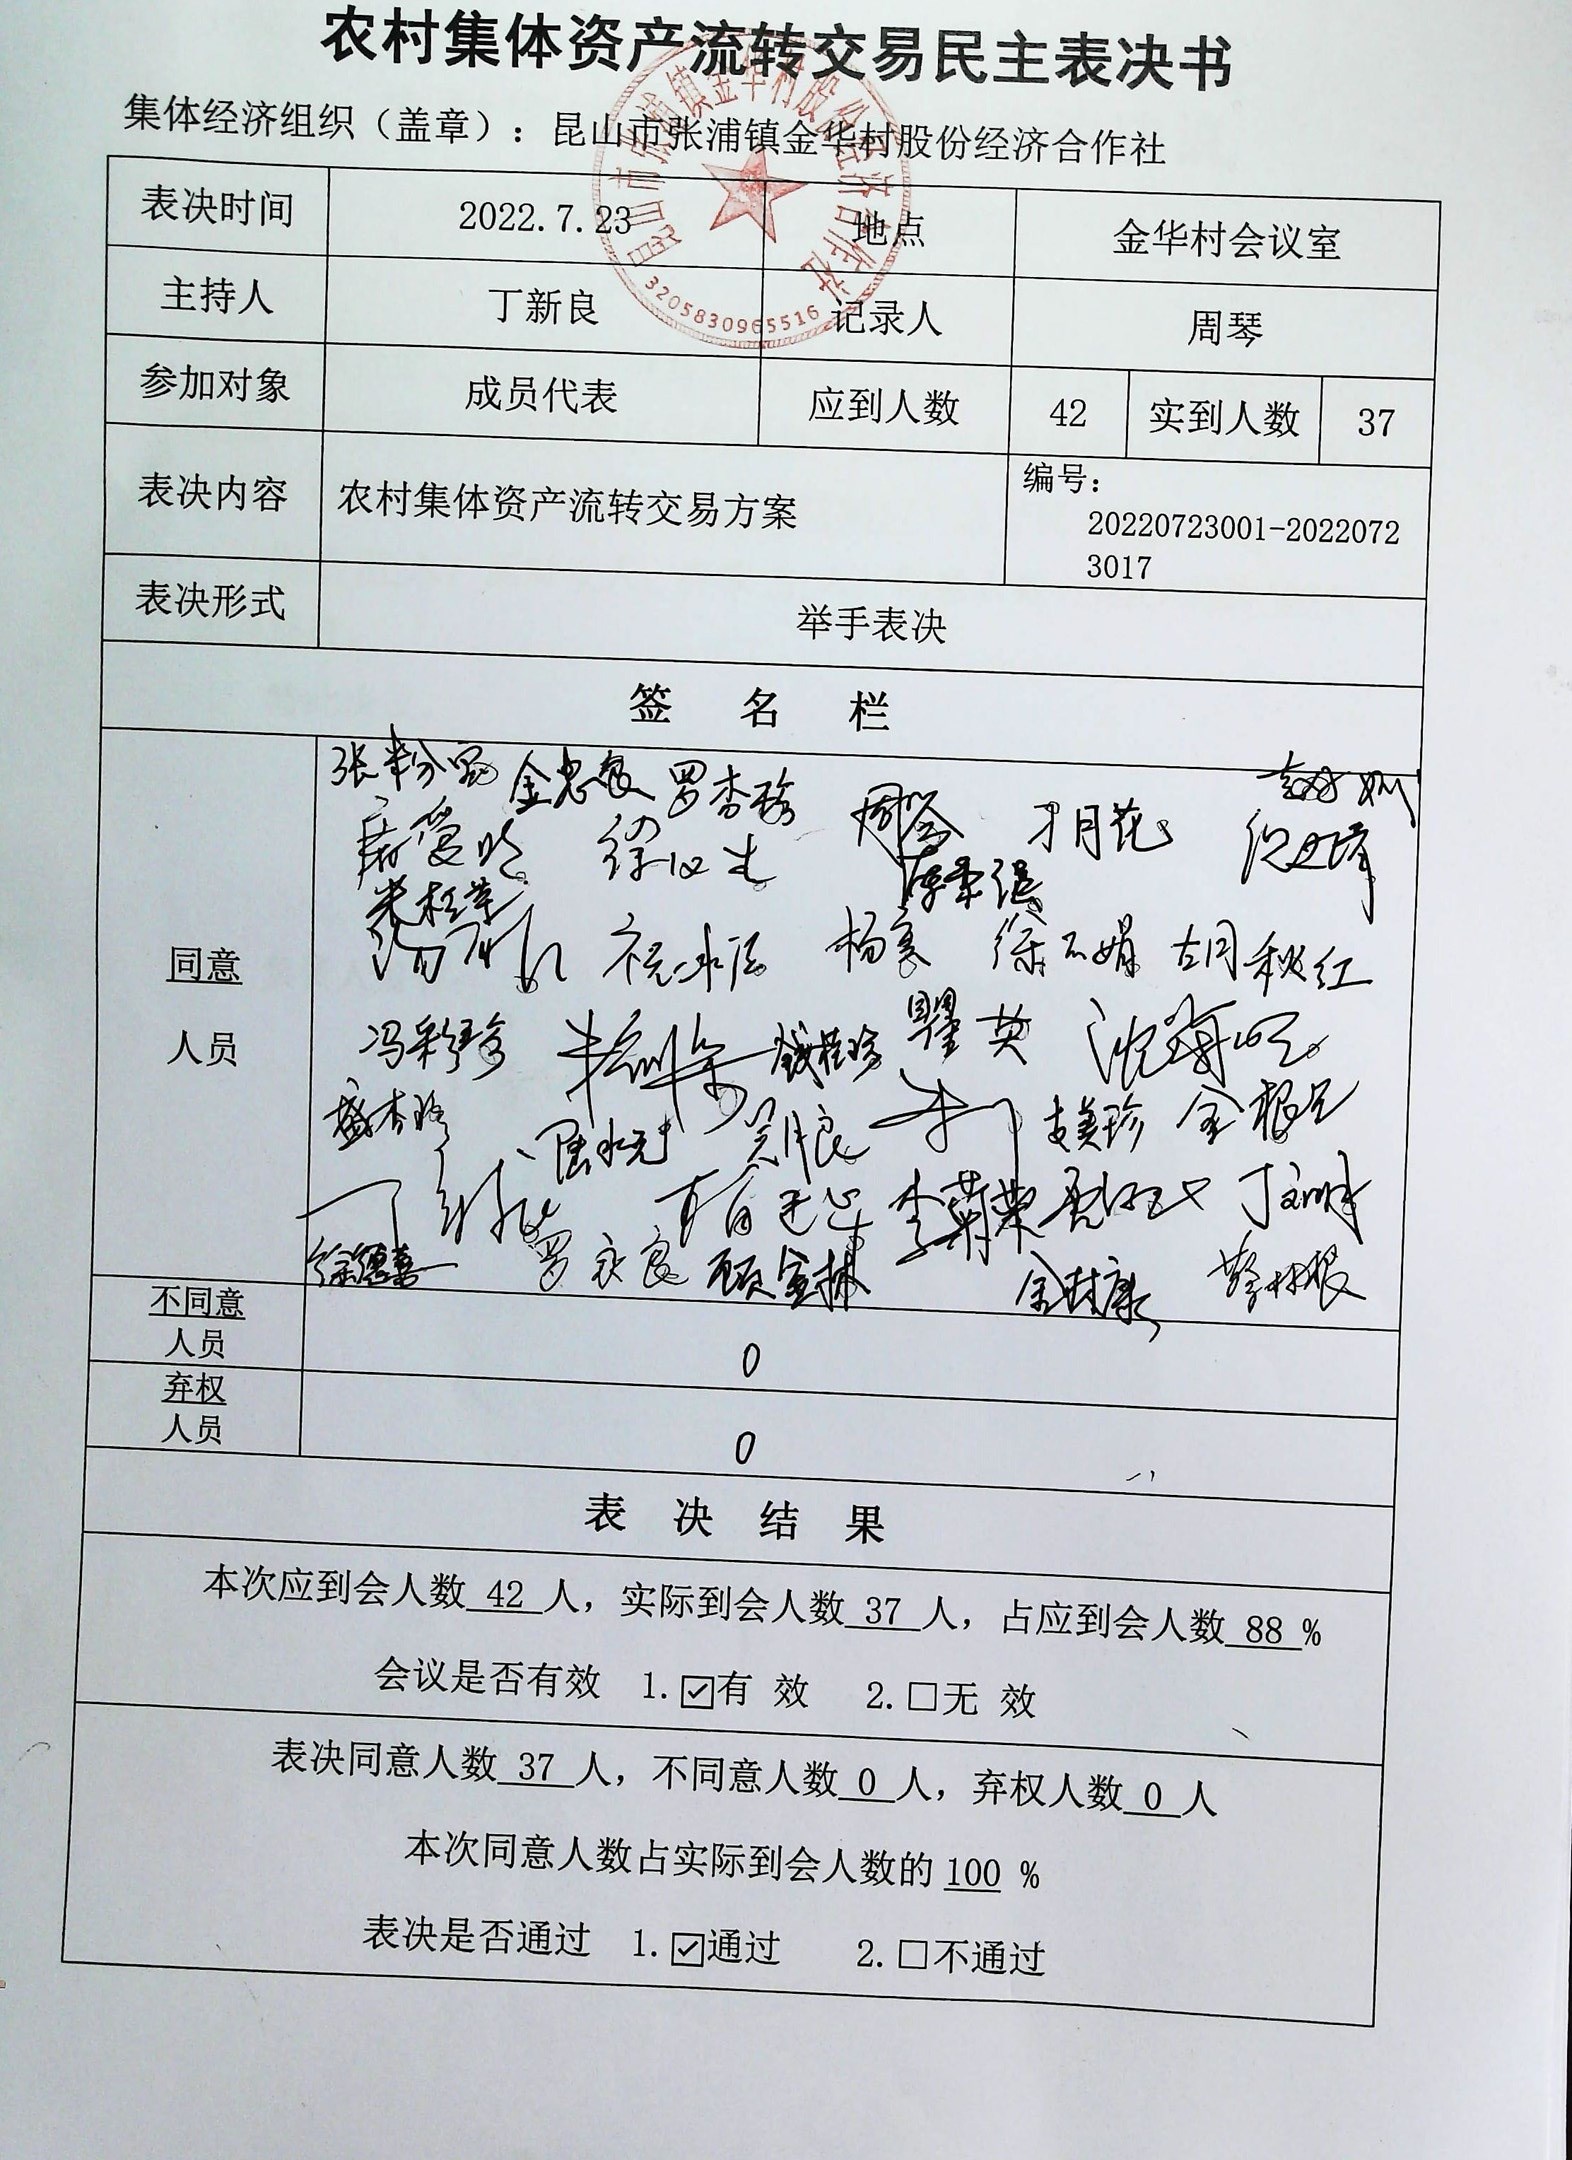 农村集体资产流转交易民主表决书
集体经济组织（盖章）：昆山市张浦镇金华村股份经济合作社
昆山市张浦镇金华村股份经济合作社
3205830965516
表决时间 2022.7.23 地点 金华村会议室
主持人 丁新良 记录人 周琴
参加对象 成员代表 应到人数 42 实到人数 37
表决内容 农村集体资产流转交易方案 编号：
20220723001-2022072
3017
表决形式 举手表决
签 名 栏
同意
人员
金忠良 罗杏珍
杨亮 胡秋红
冯彩珍 钱桂珍 瞿英 沈海明
盛杏珍 陆水元 支美珍 金根兄
李菊荣 丁新明
徐德喜 罗永良 顾金林 金封康 蔡林根
不同意
人员 0
弃权
人员 0
表 决 结 果
本次应到会人数 42 人，实际到会人数 37 人，占应到会人数 88 %
会议是否有效 1.☑有 效 2.☐无 效
表决同意人数 37 人，不同意人数 0 人，弃权人数 0 人
本次同意人数占实际到会人数的 100 %
表决是否通过 1.☑通过 2.☐不通过